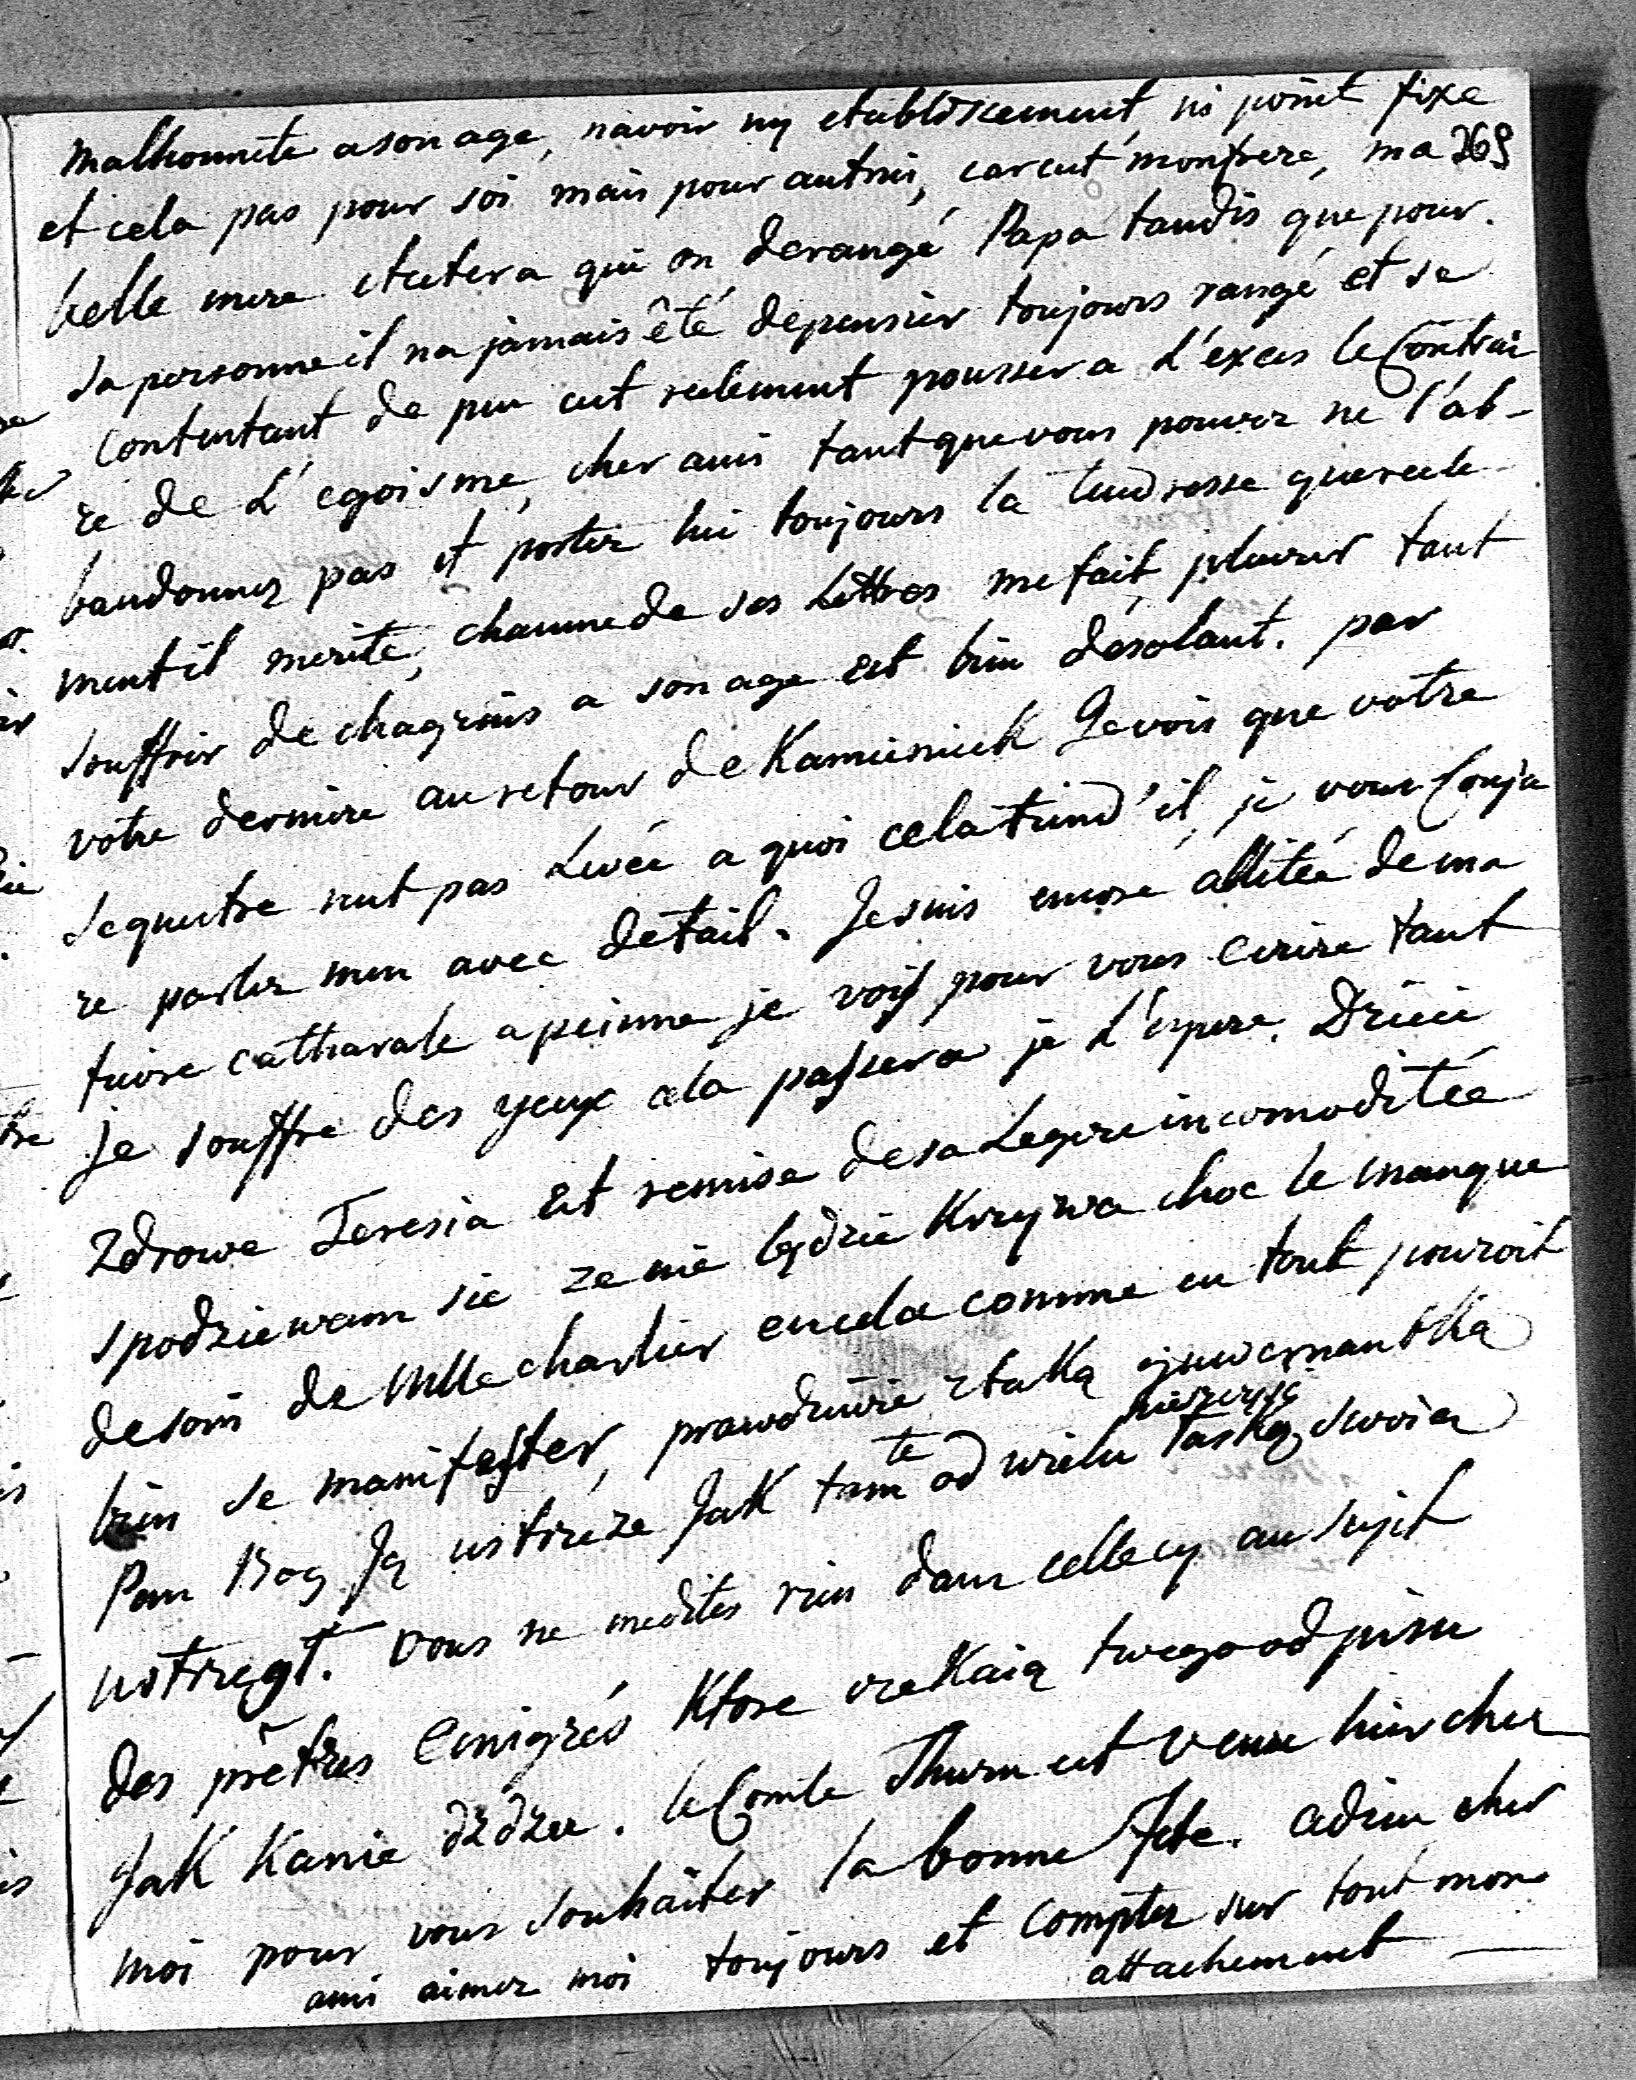 malhonnete a son age, navoir ny etablissement, ni point fixe
269
et cela pas pour soi mais pour autrui, car cest mon frere, ma
belle mere etcetera qui on derangé Papa tandis que pour
sa personne il na jamais été depensier toujours rangé et se
contentant de peu cest seulement pousser a l'exces le Contrai
re de L'egoisme, cher ami tant que vous pouvez ne l'ab-
bandonnez pas et portez lui toujours la tendresse que reele
ment il merite, chaqune de ses Lettres me fait pleurer tant
souffrir de chagrins a son age est bien désolant. par
votre derniere au retour de Kamieniek Je vois que votre
sequestre nest pas Levée a quoi cela tiend'il, je vous Conju
re parlez men avec detail. Je suis encore allitée de ma
fievre catharale a peinne je vois pour vous ecrire tant
je souffre des yeux cela passera je L'espere. Dzieci
Zdrowe Teresia est remise de sa Legere incomoditée
spodziewam sie ze nie będzie Krzywa choc le manque
de soin de Mlle charlier en cela comme en tout pouroit
bien se manifester, prawdziwie ztaką guwernantką
Pan Bog Ją ustrzeże Jak tam te od wielu nieszczęść łaską swoią
ustrzegł. Vous ne me dites rien dans celle cy au sujet
des prêtres Emigrés Ktore czekaią twego odpisu
Jak Kanie dżdżu. le Comte Thurn est venu hier chez
moi pour vous souhaiter la bonne fete. adieu cher
ami aimez moi toujours et comptez sur tout mon
attachement